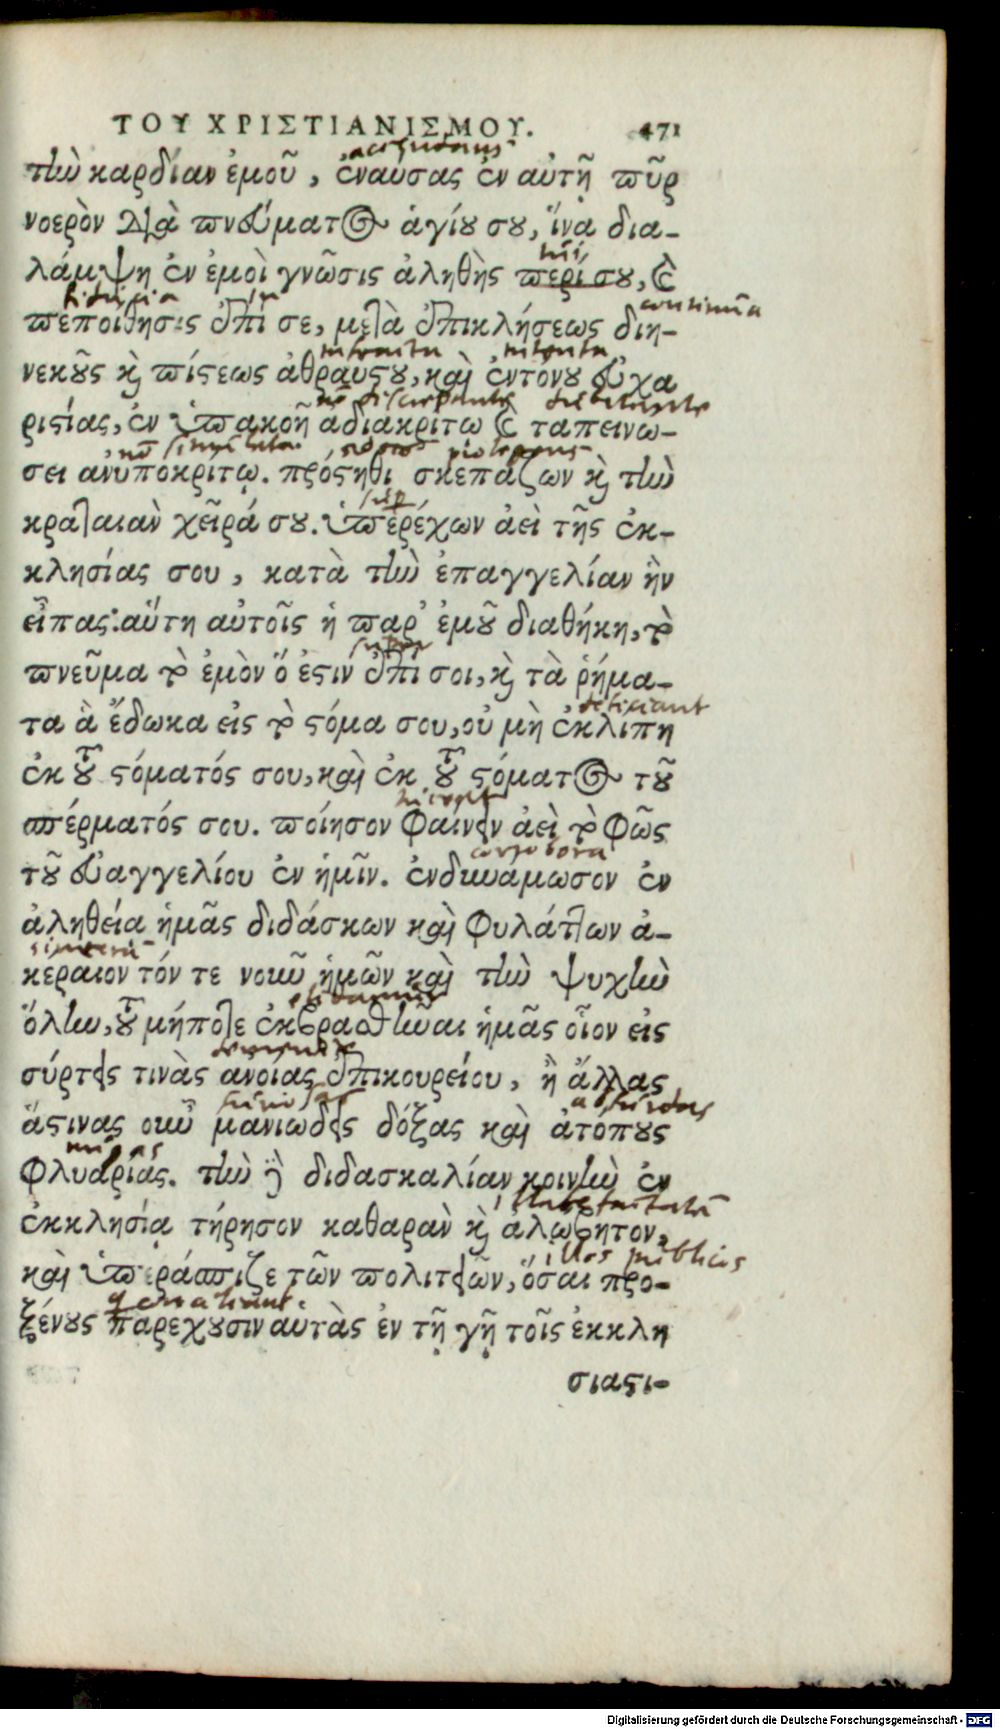 ΤΟΥ ΧΡΙΣΤΙΑΝΙΣΜΟΥ. 471
accendens
τὴν καρδίαν ἐμοῦ, ἐναύσας ἐν αὐτῇ πῦρ
νοερὸν διὰ πνεύματος ἁγίου σου, ἵνα δια-
λάμψη ἐν ἐμοὶ γνῶσις ἀληθὴς περί σου, καὶ
fiducia in continua
πεποίθησις ἐπί σε, μετὰ ἐπικλήσεως διη-
νεκοῦς καὶ πίστεως ἀθραύστου, καὶ ἐντόνου εὐχα
ριστίας, ἐν ὑπακοῇ ἀδιακρίτω καὶ ταπεινώ-
σει ἀνυποκρίτῳ. πρόστηθι σκεπάζων καὶ τὴν
super
κραταιὰν χεῖρά σου. ὑπερέχων ἀεὶ τῆς ἐκ-
κλησίας σου, κατὰ τὴν ἐπαγγελίαν ἣν
εἶπας· αὕτη αὐτοῖς ἡ παρ' ἐμοῦ διαθήκη, τὸ
super
πνεῦμα τὸ ἐμὸν ὅ ἐστιν ἐπί σοι, καὶ τὰ ῥήμα-
deficiant
τα ἃ ἔδωκα εἰς τὸ στόμα σου, οὐ μὴ ἐκλίπη
ἐκ τοῦ στόματός σου, καὶ ἐκ τοῦ στόματος τοῦ
σπέρματός σου. ποίησον φαίνειν ἀεὶ τὸ φῶς
corrobora
τοῦ εὐαγγελίου ἐν ἡμῖν. ἐνδυνάμωσον ἐν
ἀληθεία ἡμᾶς διδάσκων καὶ φυλάττων ἀ-
κέραιον τόν τε νοῦν ἡμῶν καὶ τὴν ψυχὴν
ὅλην, τοῦ μήποτε ἐκβρασθῆναι ἡμᾶς οἷον εἰς
σύρτεις τινὰς ἀνοίας ἐπικουρείου, ἢ ἄλλας
furiosas absurdas
ἅστινας οὖν μανιώδεις δόξας καὶ ἀτόπους
nugas
φλυαρίας. τὴν δὲ διδασκαλίαν κοινὴν ἐν
ἐκκλησίᾳ τήρησον καθαρὰν καὶ ἀλώβητον,
illas publicis
καὶ ὑπεράσπιζε τῶν πολιτειῶν, ὅσαι προ-
ξένους παρέχουσιν αὐτὰς ἐν τῇ γῇ τοῖς ἐκκλη
σιαστι-
Digitalisierung gefördert durch die Deutsche Forschungsgemeinschaft - DFG